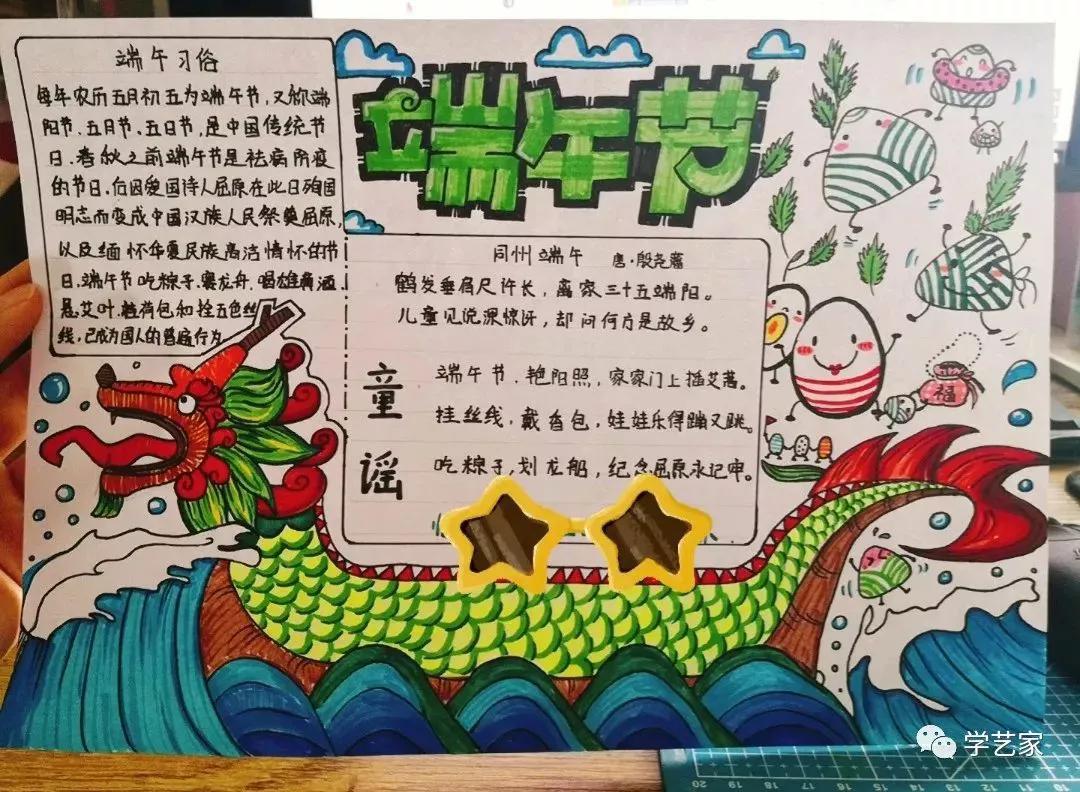 端午习俗
每年农历五月初五为端午节,又称端
阳节、五月节、五日节,是中国传统节
日.春秋之前端午节是祛病防疫
的节日,后因爱国诗人屈原在此日殉国
明志而变成中国汉族人民祭奠屈原,
以及缅怀华夏民族高洁情怀的节
日.端午节吃粽子.赛龙舟.喝雄黄酒
悬艾叶.挂荷包和拴五色丝
线,已成为国人的普遍行为
端午节
同州端午 唐·殷尧藩
鹤发垂肩尺许长,离家三十五端阳。
儿童见说深惊讶,却问何方是故乡。
童谣
端午节、艳阳照,家家门上插艾蒿。
挂丝线,戴香包,娃娃乐得蹦又跳。
吃粽子,划龙船,纪念屈原永记牢。
福
学艺家
20 19 18 17 16 15 14 13 12 11 10